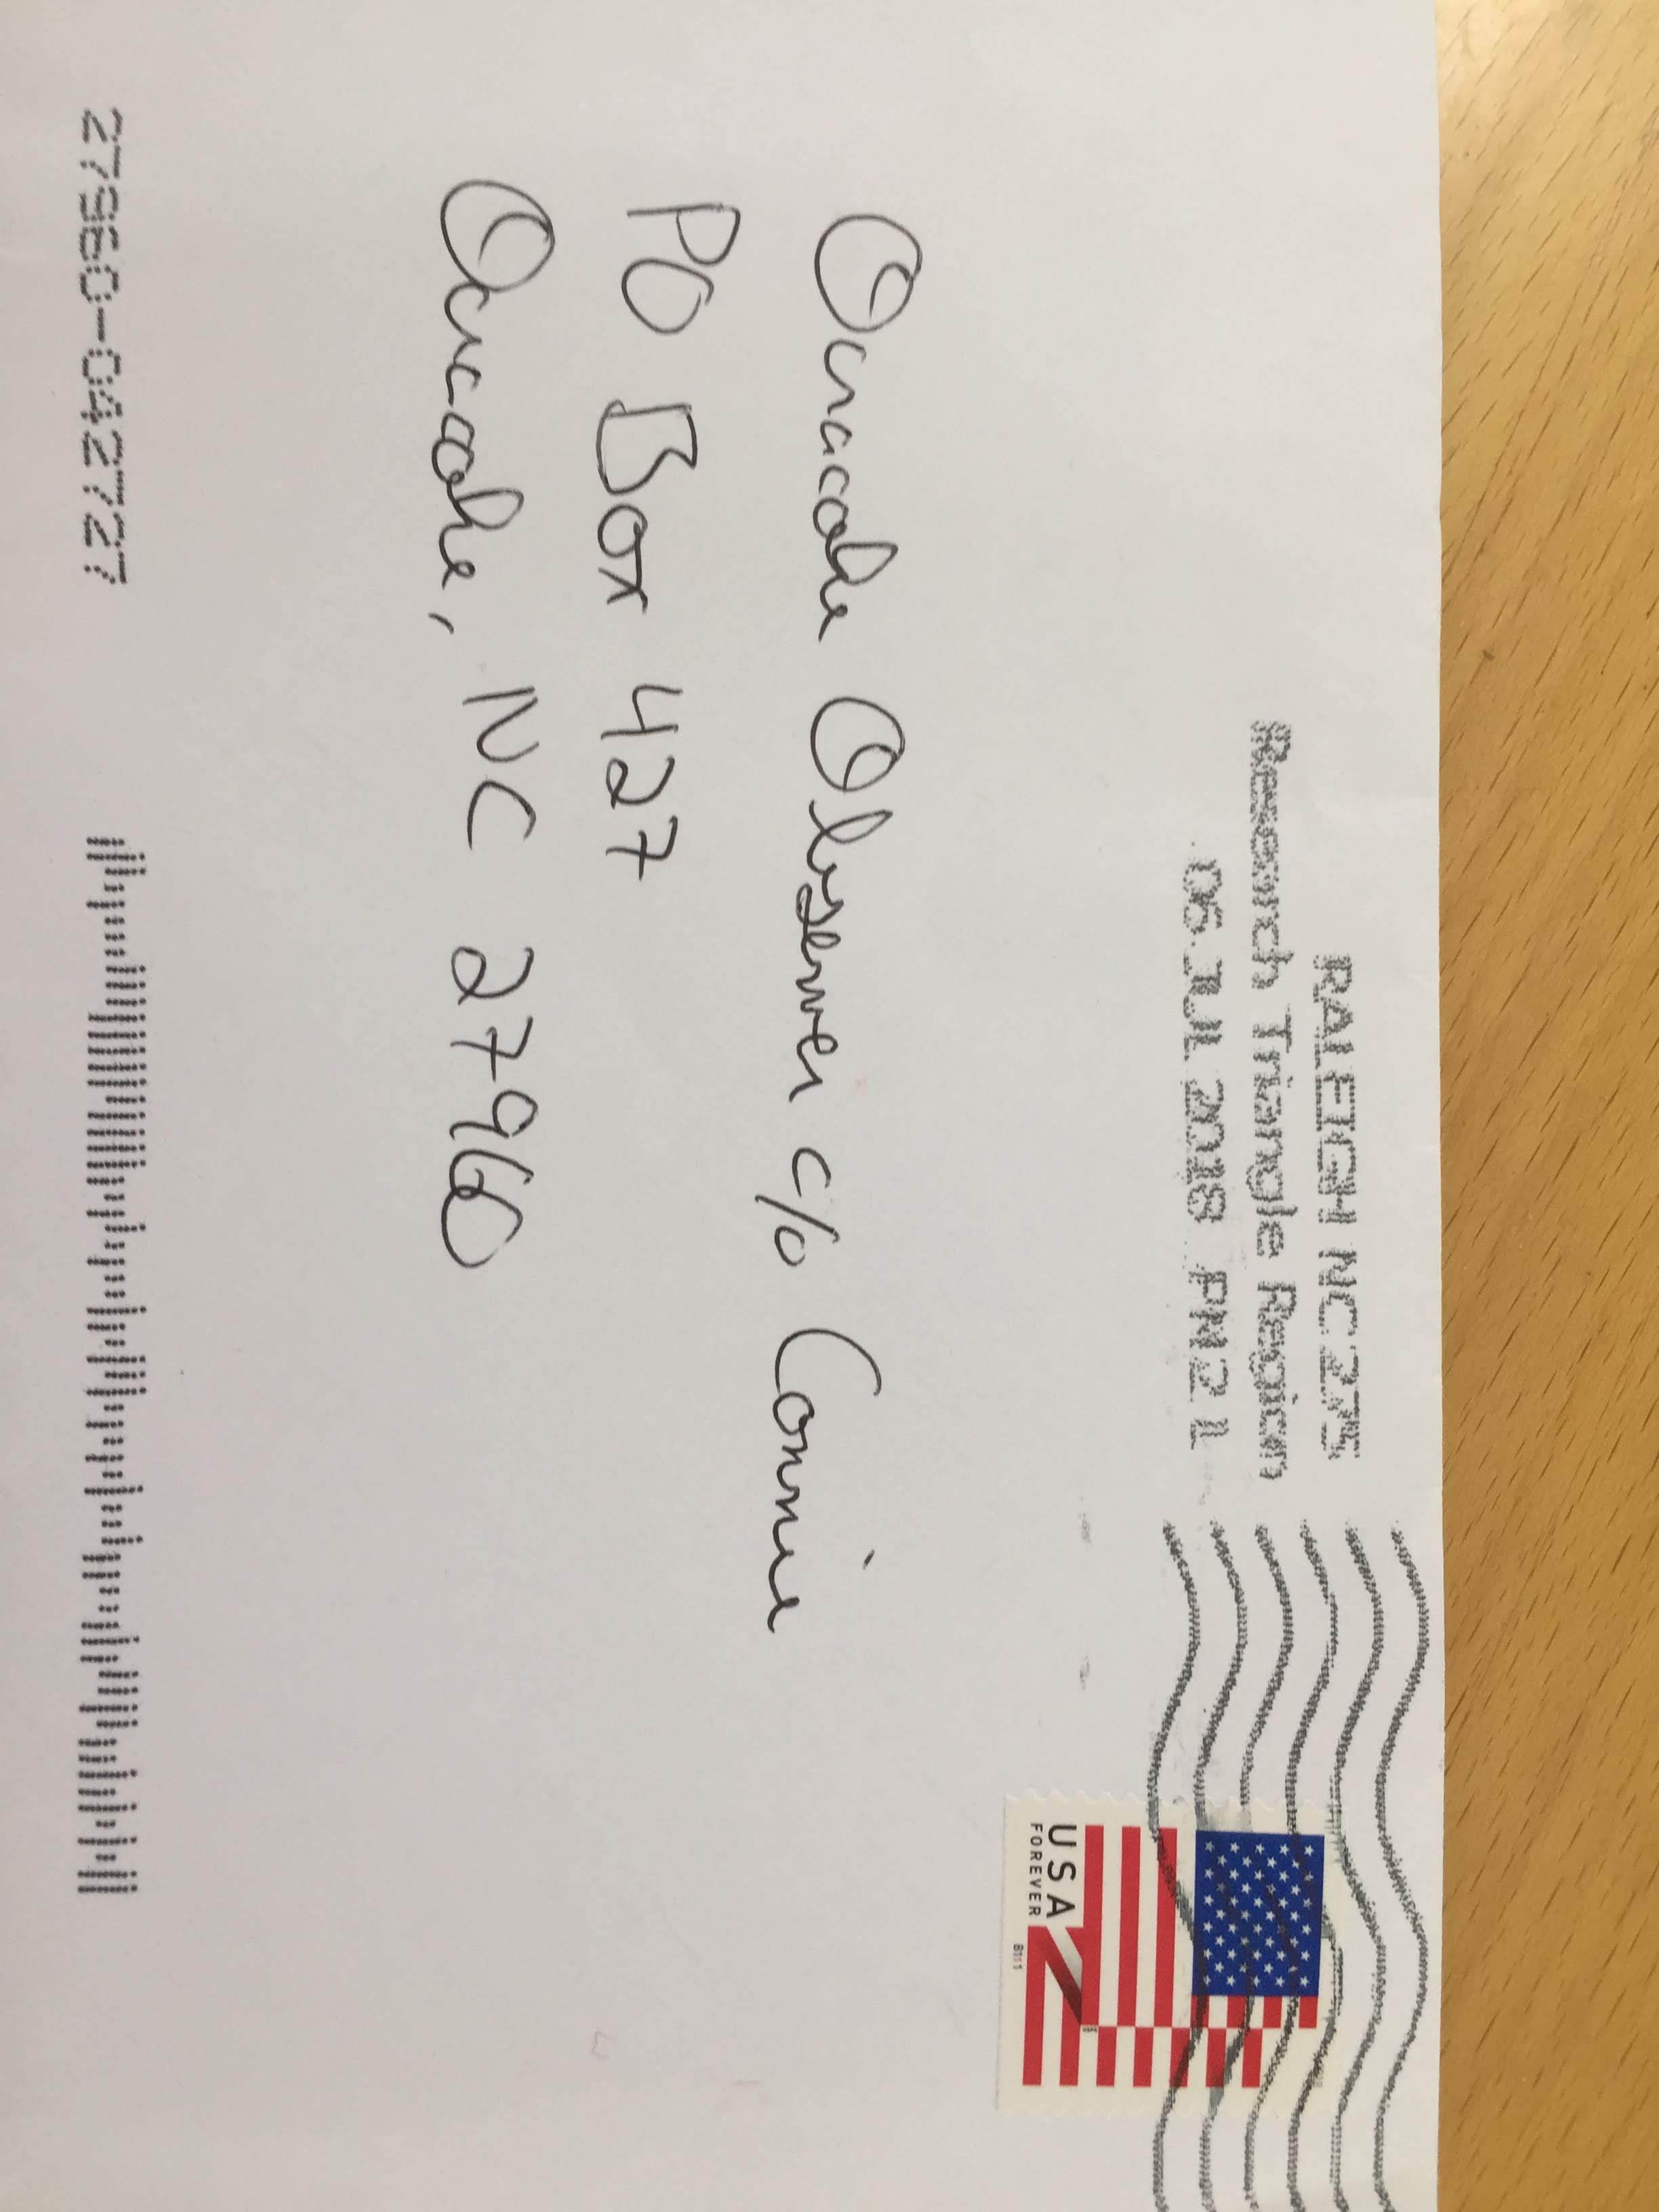 RALEIGH NC 275
Research Triangle Region
06 JUL 2018 PM 2 L
USA
FOREVER
B1111
Ocracoke Observer c/o Connie
PO Box 427
Ocracoke, NC 27960
27960-042727